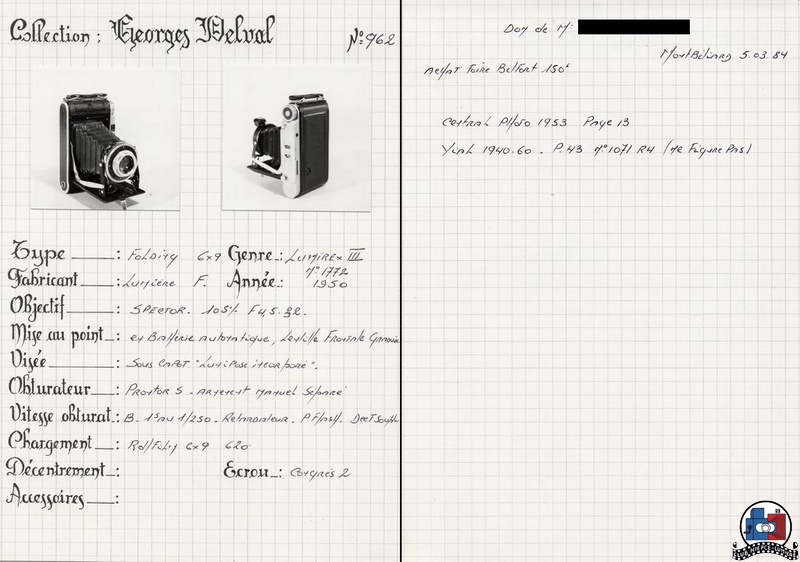 Collection : Georges Delval
N°: 962
Type : Folding 6x9 Genre : Lumirex III
N° 1772
Fabricant : Lumière F. Année : 1950
Objectif : SPECTOR. 105% F 4,5
Mise au point : en Batterie automatique, Lentille Frontale
Visée : Sous CAPOT "Luxipose incorporé".
Obturateur : Prontor S - armement manuel séparé
Vitesse obturat. : B. 1s au 1/250. Retardateur. P Flash.
Chargement : Roll Film 6x9 620
Décentrement : Ecrou : Congrès 2
Accessoires :
Don de Mr
Montbéliard 5.03.84
Achat Foire Belfort 150f
Central Photo 1953 Page 13
Vial 1940-60 - P.43 N° 1071 R4 (ne Figure Pas)